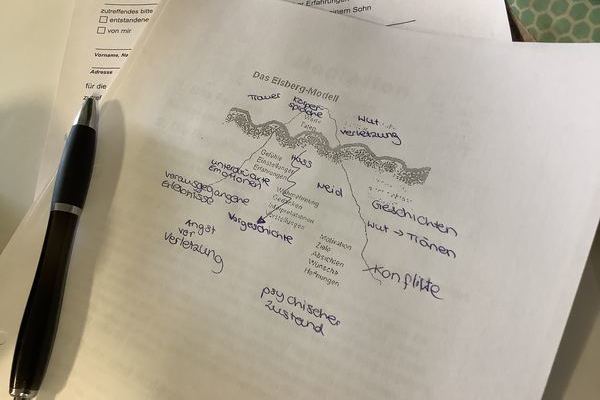 zutreffendes bitte
entstandene
von mir
Vorname, Na
Adresse
für die
Erfahrungen
einem Sohn
Das Eisberg-Modell
Trauer
Körper-
sprache
Worte
Taten
Wut
Verletzung
Gefühle
Einstellungen
Erfahrungen
Hass
unterdrückte
Emotionen
vorausgegangene
Erlebnisse
Wahrnehmung
Gedanken
Interpretationen
Vorgeschichte
Neid
Geschichten
Wut → Tränen
Angst
vor
Verletzung
Motivation
Ziele
Absichten
Wünsche
Hoffnungen
Konflikte
psychischer
Zustand